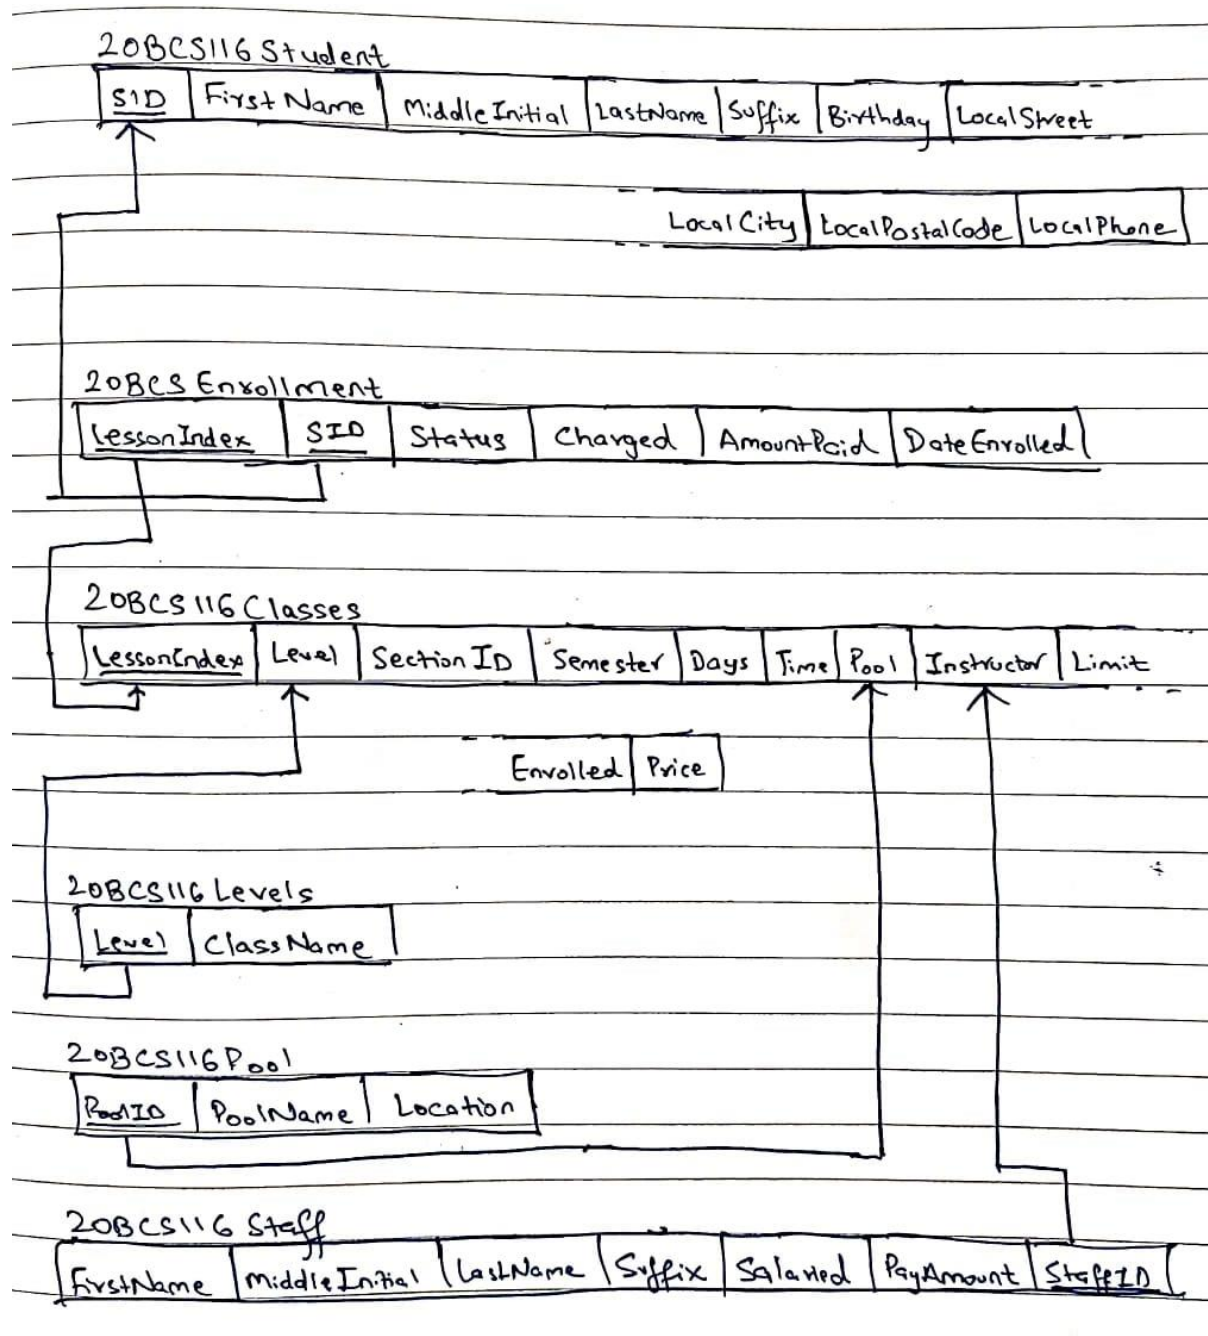 20BCS116 Student
SID FirstName MiddleInitial LastName Suffix Birthday LocalStreet
LocalCity LocalPostalCode LocalPhone
20BCS Enrollment
LessonIndex SID Status Charged AmountPaid DateEnrolled
20BCS116 Classes
LessonIndex Level SectionID Semester Days Time Pool Instructor Limit
Enrolled Price
20BCS116 Levels
Level ClassName
20BCS116 Pool
PoolID PoolName Location
20BCS116 Staff
FirstName MiddleInitial LastName Suffix Salaried PayAmount StaffID